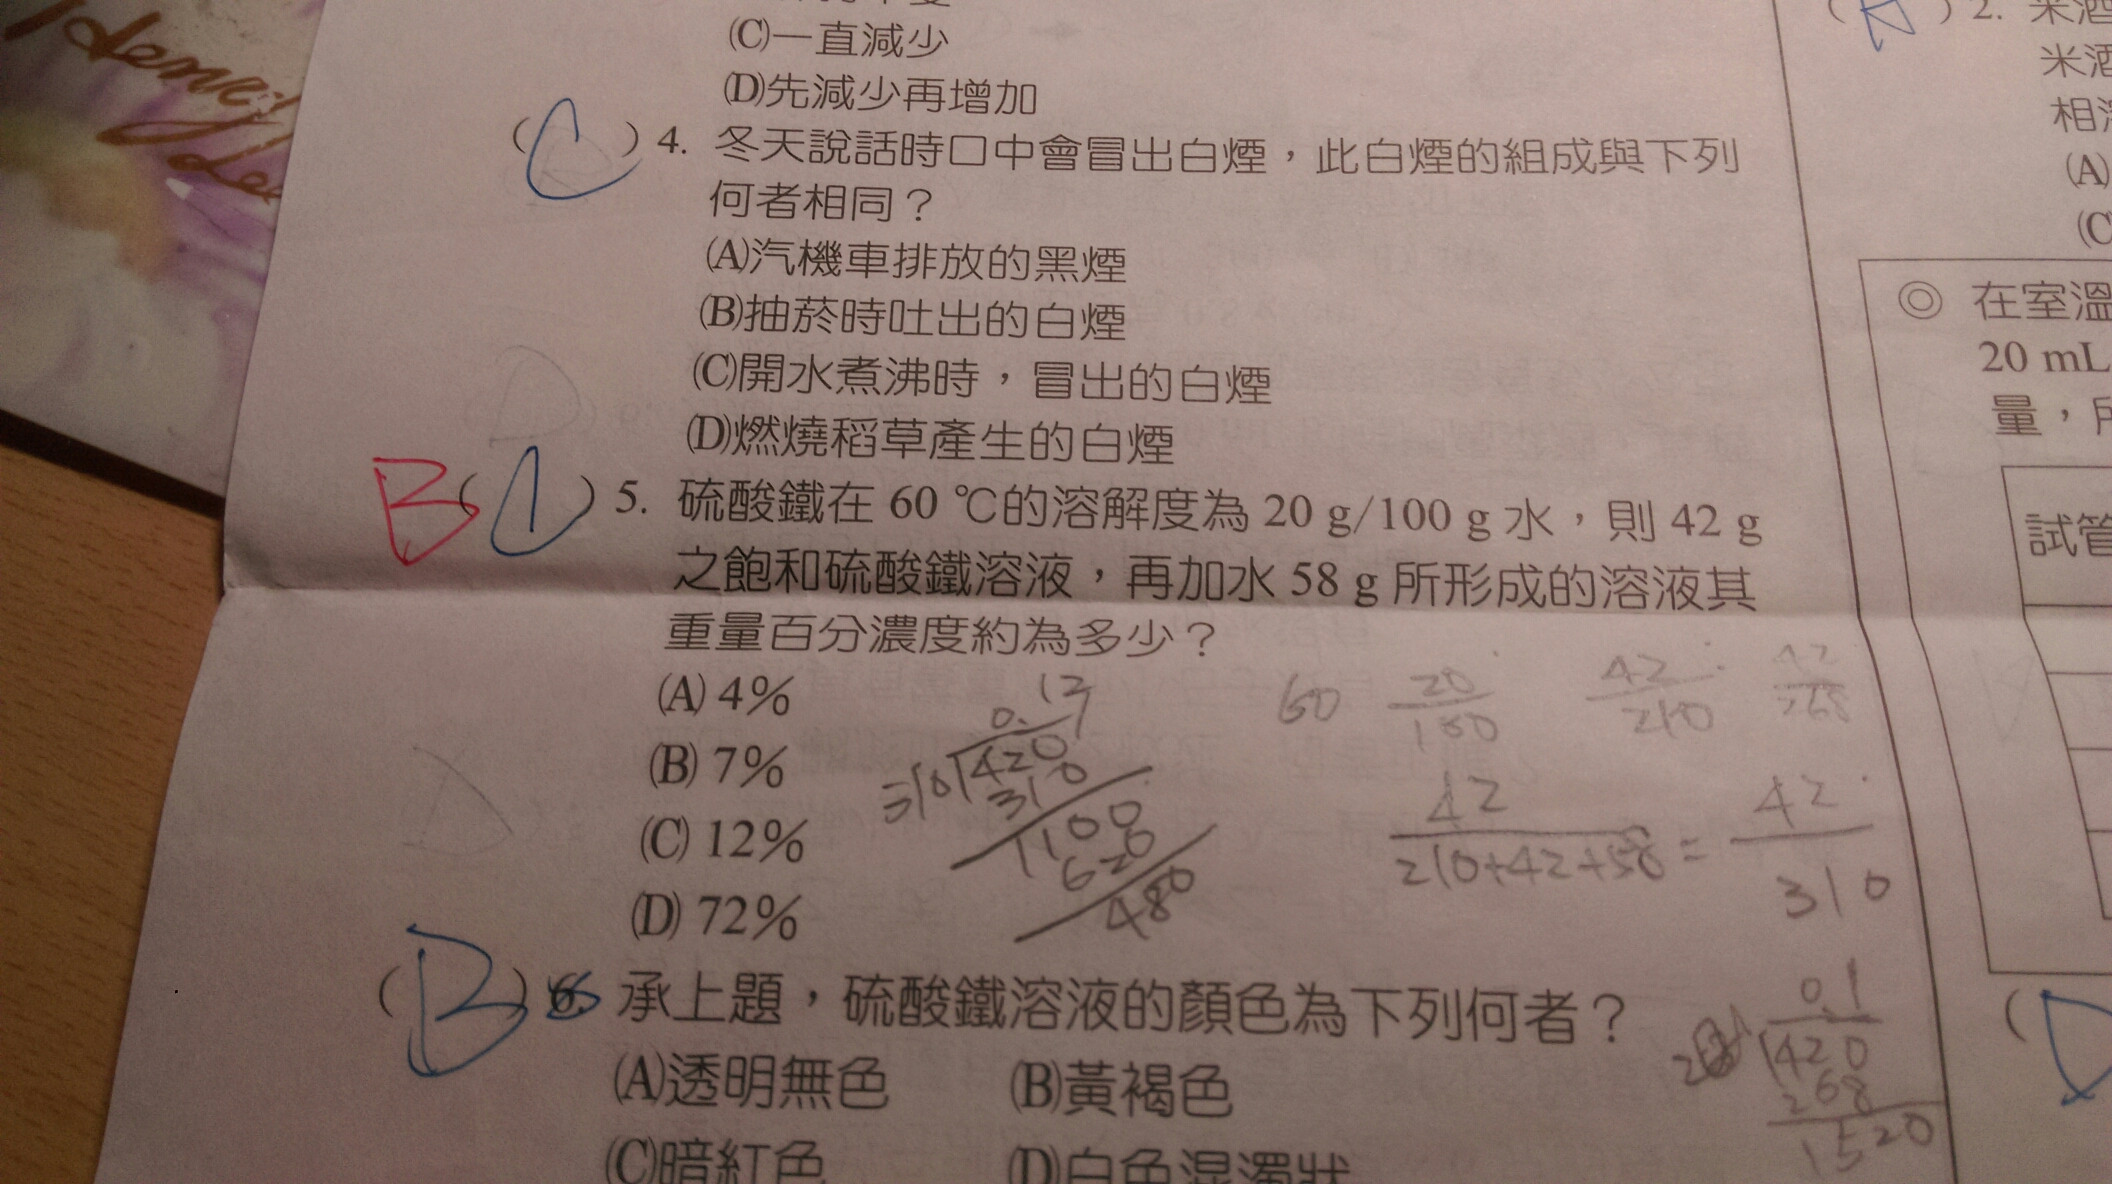 (C)一直減少
(D)先減少再增加
( C ) 4. 冬天說話時口中會冒出白煙，此白煙的組成與下列
何者相同？
(A)汽機車排放的黑煙
(B)抽菸時吐出的白煙
(C)開水煮沸時，冒出的白煙
(D)燃燒稻草產生的白煙
B ( ) 5. 硫酸鐵在 60 ℃的溶解度為 20 g/100 g 水，則 42 g
之飽和硫酸鐵溶液，再加水 58 g 所形成的溶液其
重量百分濃度約為多少？
(A) 4%
(B) 7%
(C) 12%
(D) 72%
( B ) 6. 承上題，硫酸鐵溶液的顏色為下列何者？
(A)透明無色 (B)黃褐色
(C)暗紅色 (D)白色混濁狀
42
210+42+58
=
42
310
0.1
420
268
1520
310
420
310
1100
480
D
) 2. 米酒
米酒
(A)
(C
◎ 在室溫
20 mL
量，所
試管
( D